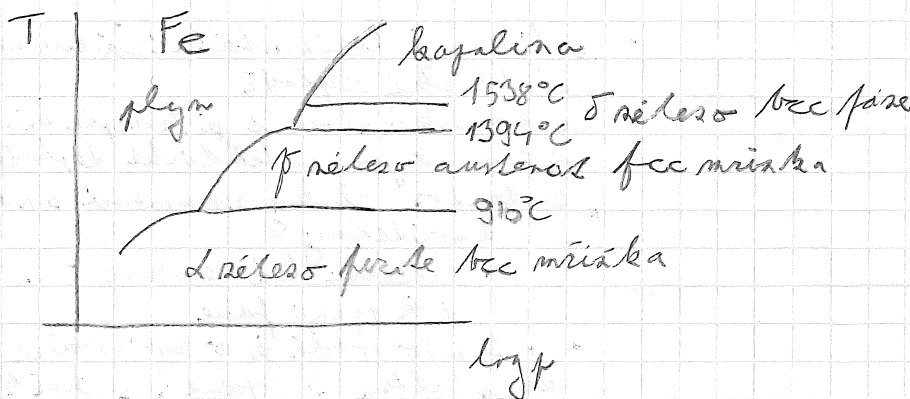 T
Fe
kapalina
plyn
1538°C
δ železo bcc fáze
1394°C
γ železo austenit fcc mřížka
910°C
α železo ferite bcc mřížka
log p